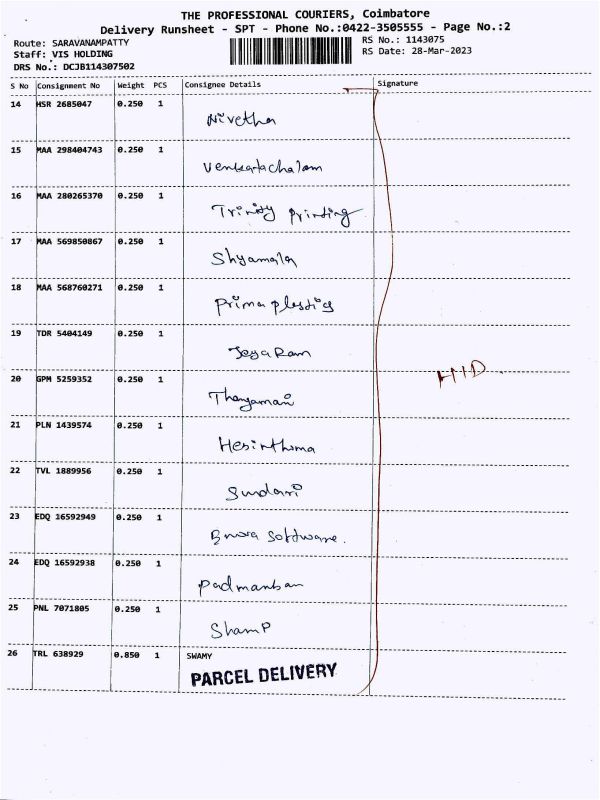 THE PROFESSIONAL COURIERS, Coimbatore
Delivery Runsheet - SPT - Phone No.:0422-3505555 - Page No.:2
Route: SARAVANAMPATTY
RS No.: 1143075
Staff: VIS HOLDING
RS Date: 28-Mar-2023
DRS No.: DCJB114307502
S No Consignment No Weight PCS Consignee Details Signature
14 HSR 2685047 0.250 1
Nivetha
15 MAA 298404743 0.250 1
Venkatachalam
16 MAA 280265370 0.250 1
Trinity printing
17 MAA 569850867 0.250 1
Shyamala
18 MAA 568760271 0.250 1
Prima plastics
19 TDR 5404149 0.250 1
Jeya Ram
20 GPM 5259352 0.250 1
Thangamani
21 PLN 1439574 0.250 1
22 TVL 1889956 0.250 1
Sundari
23 EDQ 16592949 0.250 1
software.
24 EDQ 16592938 0.250 1
Padmanban
25 PNL 7071805 0.250 1
Sham P
26 TRL 638929 0.850 1 SWAMY
PARCEL DELIVERY